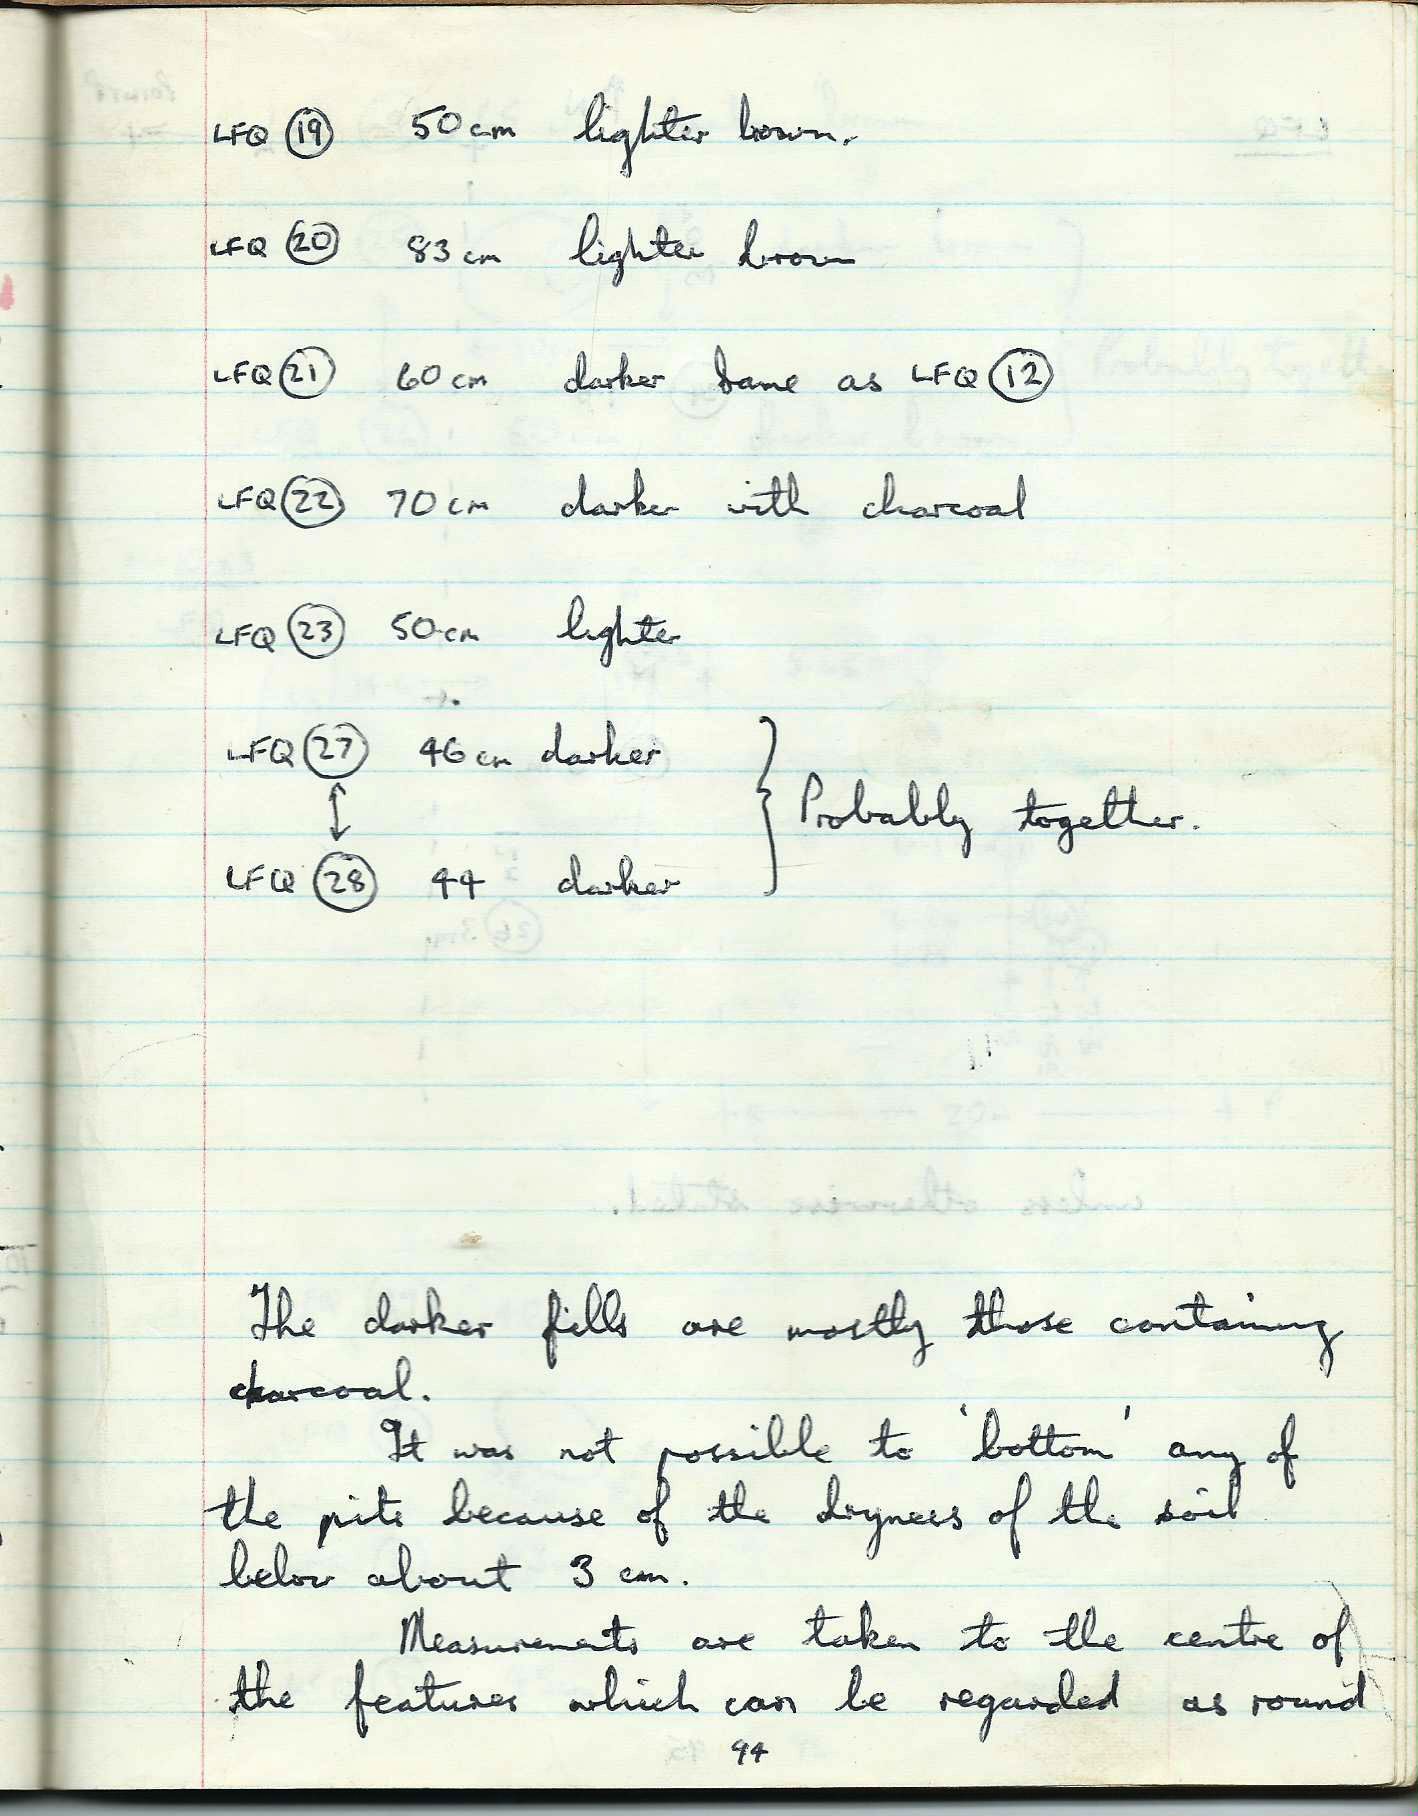 LFQ 19 50cm lighter brown.
LFQ 20 83cm lighter brown
LFQ 21 60cm darker same as LFQ 12
LFQ 22 70cm darker with charcoal
LFQ 23 50cm lighter
LFQ 27 46cm darker
↕ } Probably together.
LFQ 28 44 darker
The darker fills are mostly those containing
charcoal.
It was not possible to 'bottom' any of
the pits because of the dryness of the soil
below about 3 cm.
Measurements are taken to the centre of
the features which can be regarded as round
94